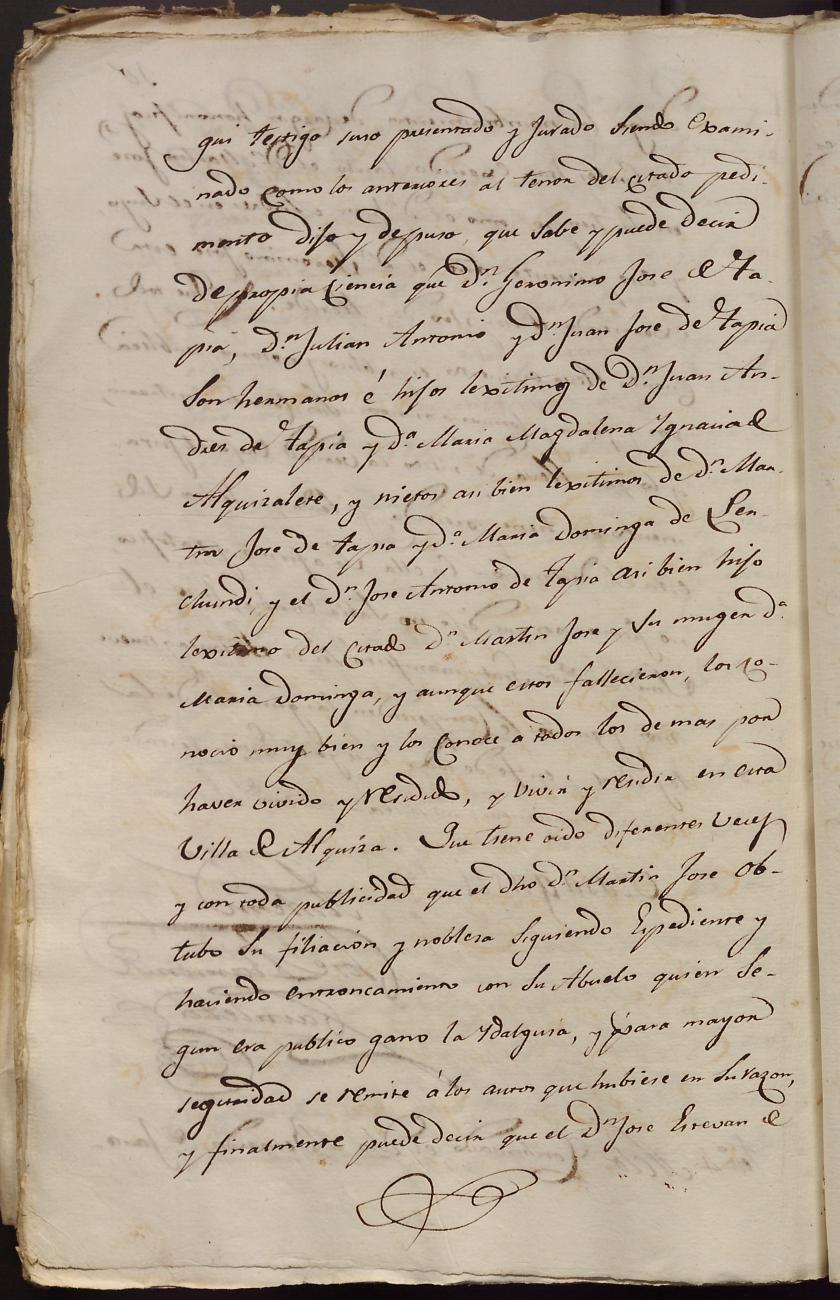 gui testigo suso presentado y Jurado siendo Exami-
nado como los anteriores al tenor del citado pedi-
mento dijo y depuso, que sabe y puede decir
de propia Ciencia que Dn. Geronimo Jose de Ta-
pia, Dn. Julian Antonio y Dn. Juan Jose de Tapia
son hermanos é hijos lexitimos de Dn. Juan An-
dres de Tapia y Da. Maria Magdalena Ygnacia de
Alquizalete, y nietos asi bien lexitimos de Dn. Mar-
tin Jose de Tapia y Da. Maria Dominga de Len-
chundi, y el Dn. Jose Antonio de Tapia asi bien hijo
lexitimo del citado Dn. Martin Jose y su muger Da.
Maria Dominga, y aunque estos fallecieron, los co-
nocio muy bien y los conoce a todos los demas por
haver vivido y residido, y vivir y residir en esta
Villa de Alquiza. Que tiene oido diferentes veces
y con toda publicidad que el dho Dn. Martin Jose ob-
tubo su filiacion y noblesa siguiendo Expediente y
haciendo entroncamiento con su Abuelo quien se-
gun era publico gano la Ydalguia, y para mayor
seguridad se remite á los autos que hubiese en su razon,
y finalmente puede decir que el Dn. Jose Estevan de